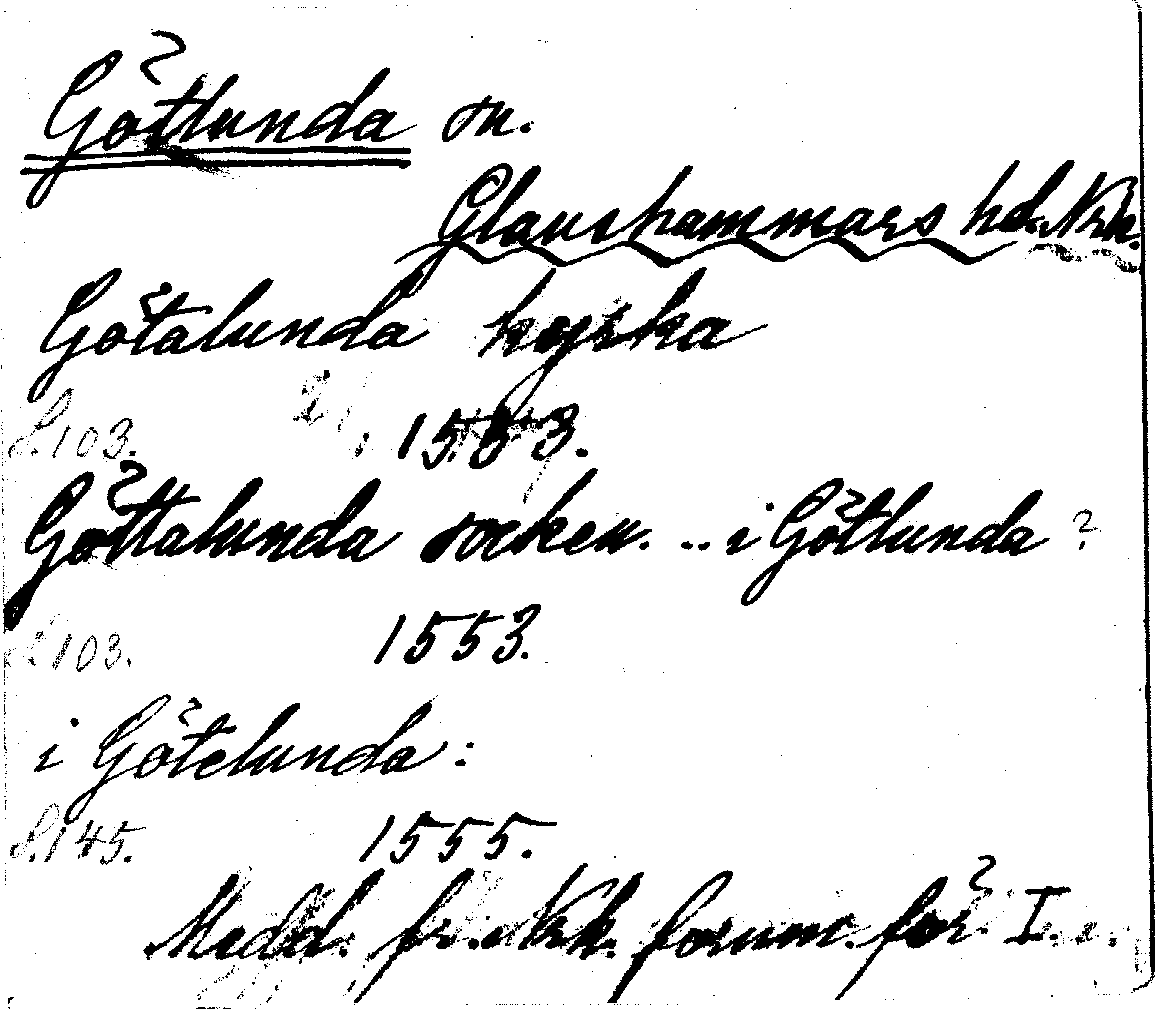 Götlunda sn.
Glanshammars hd. Nrk.
Götalunda kyrka
S. 103. 1553.
Göttalunda socken. .. i Götlunda ?
S. 103. 1553.
i Götelunda :
S. 145. 1555.
Medd. fr. Nrk. fornm. för. I.